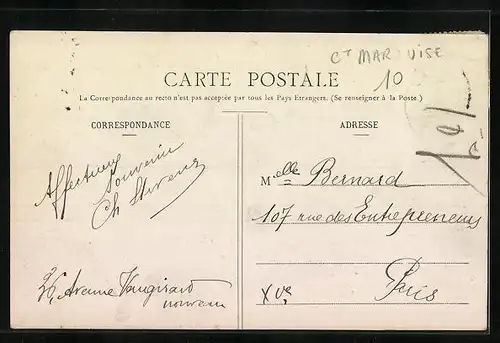 Cᵗ MAR VISE
10
CARTE POSTALE
La Correspondance au recto n'est pas acceptée par tous les Pays Etrangers. (Se renseigner à la Poste.)
CORRESPONDANCE
Affectueux
Souvenir
Ch Stevens
26, Avenue Vaugirard
nouveau
ADRESSE
Melle Bernard
107 rue des Entrepreneurs
XVe Paris